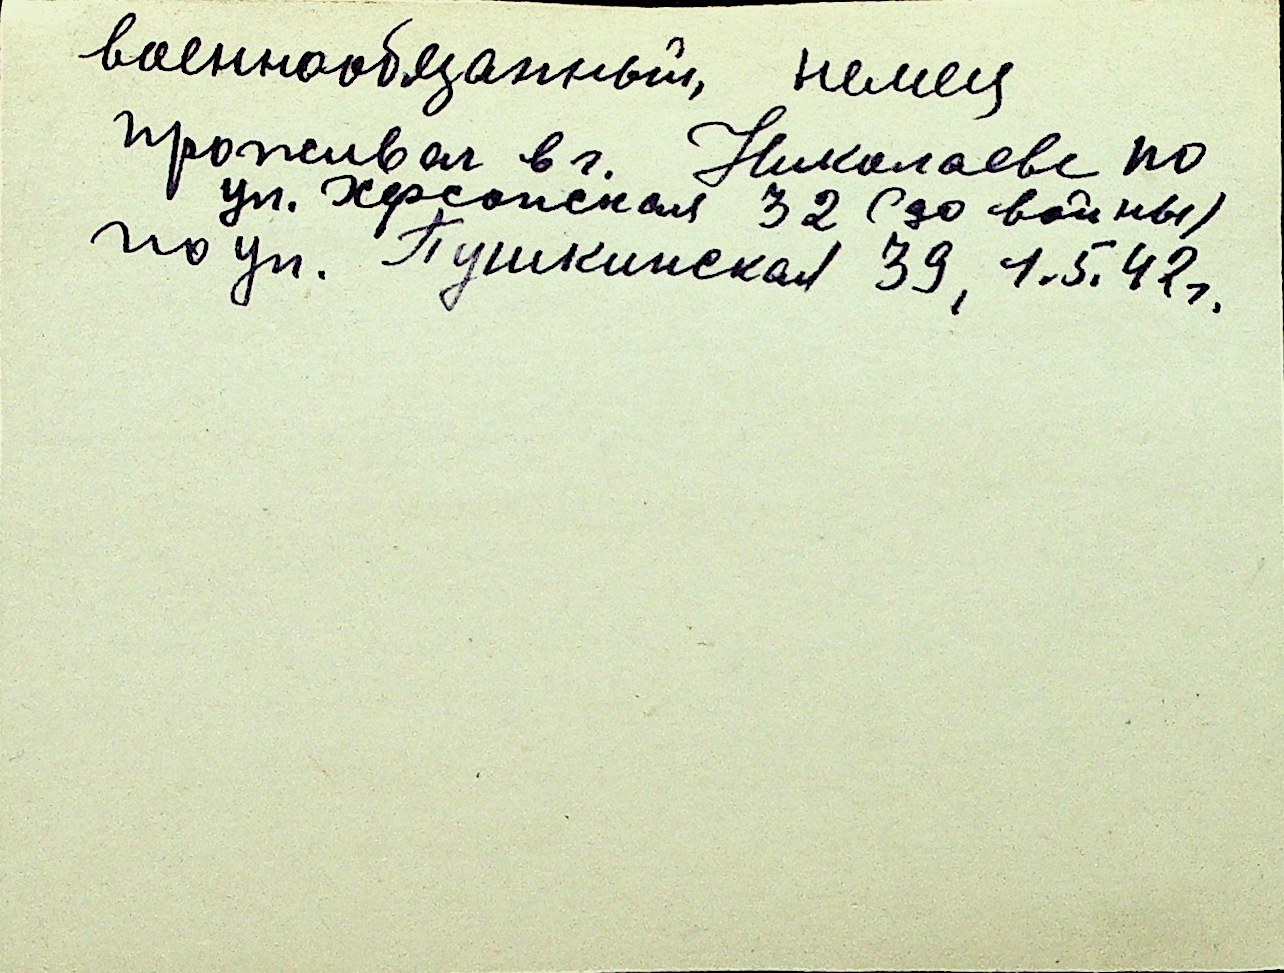 военнообязанный, немец
проживал в г. Николаеве по
ул. Херсонская 32 (до войны)
по ул. Пушкинская 39, 1.5.42г.